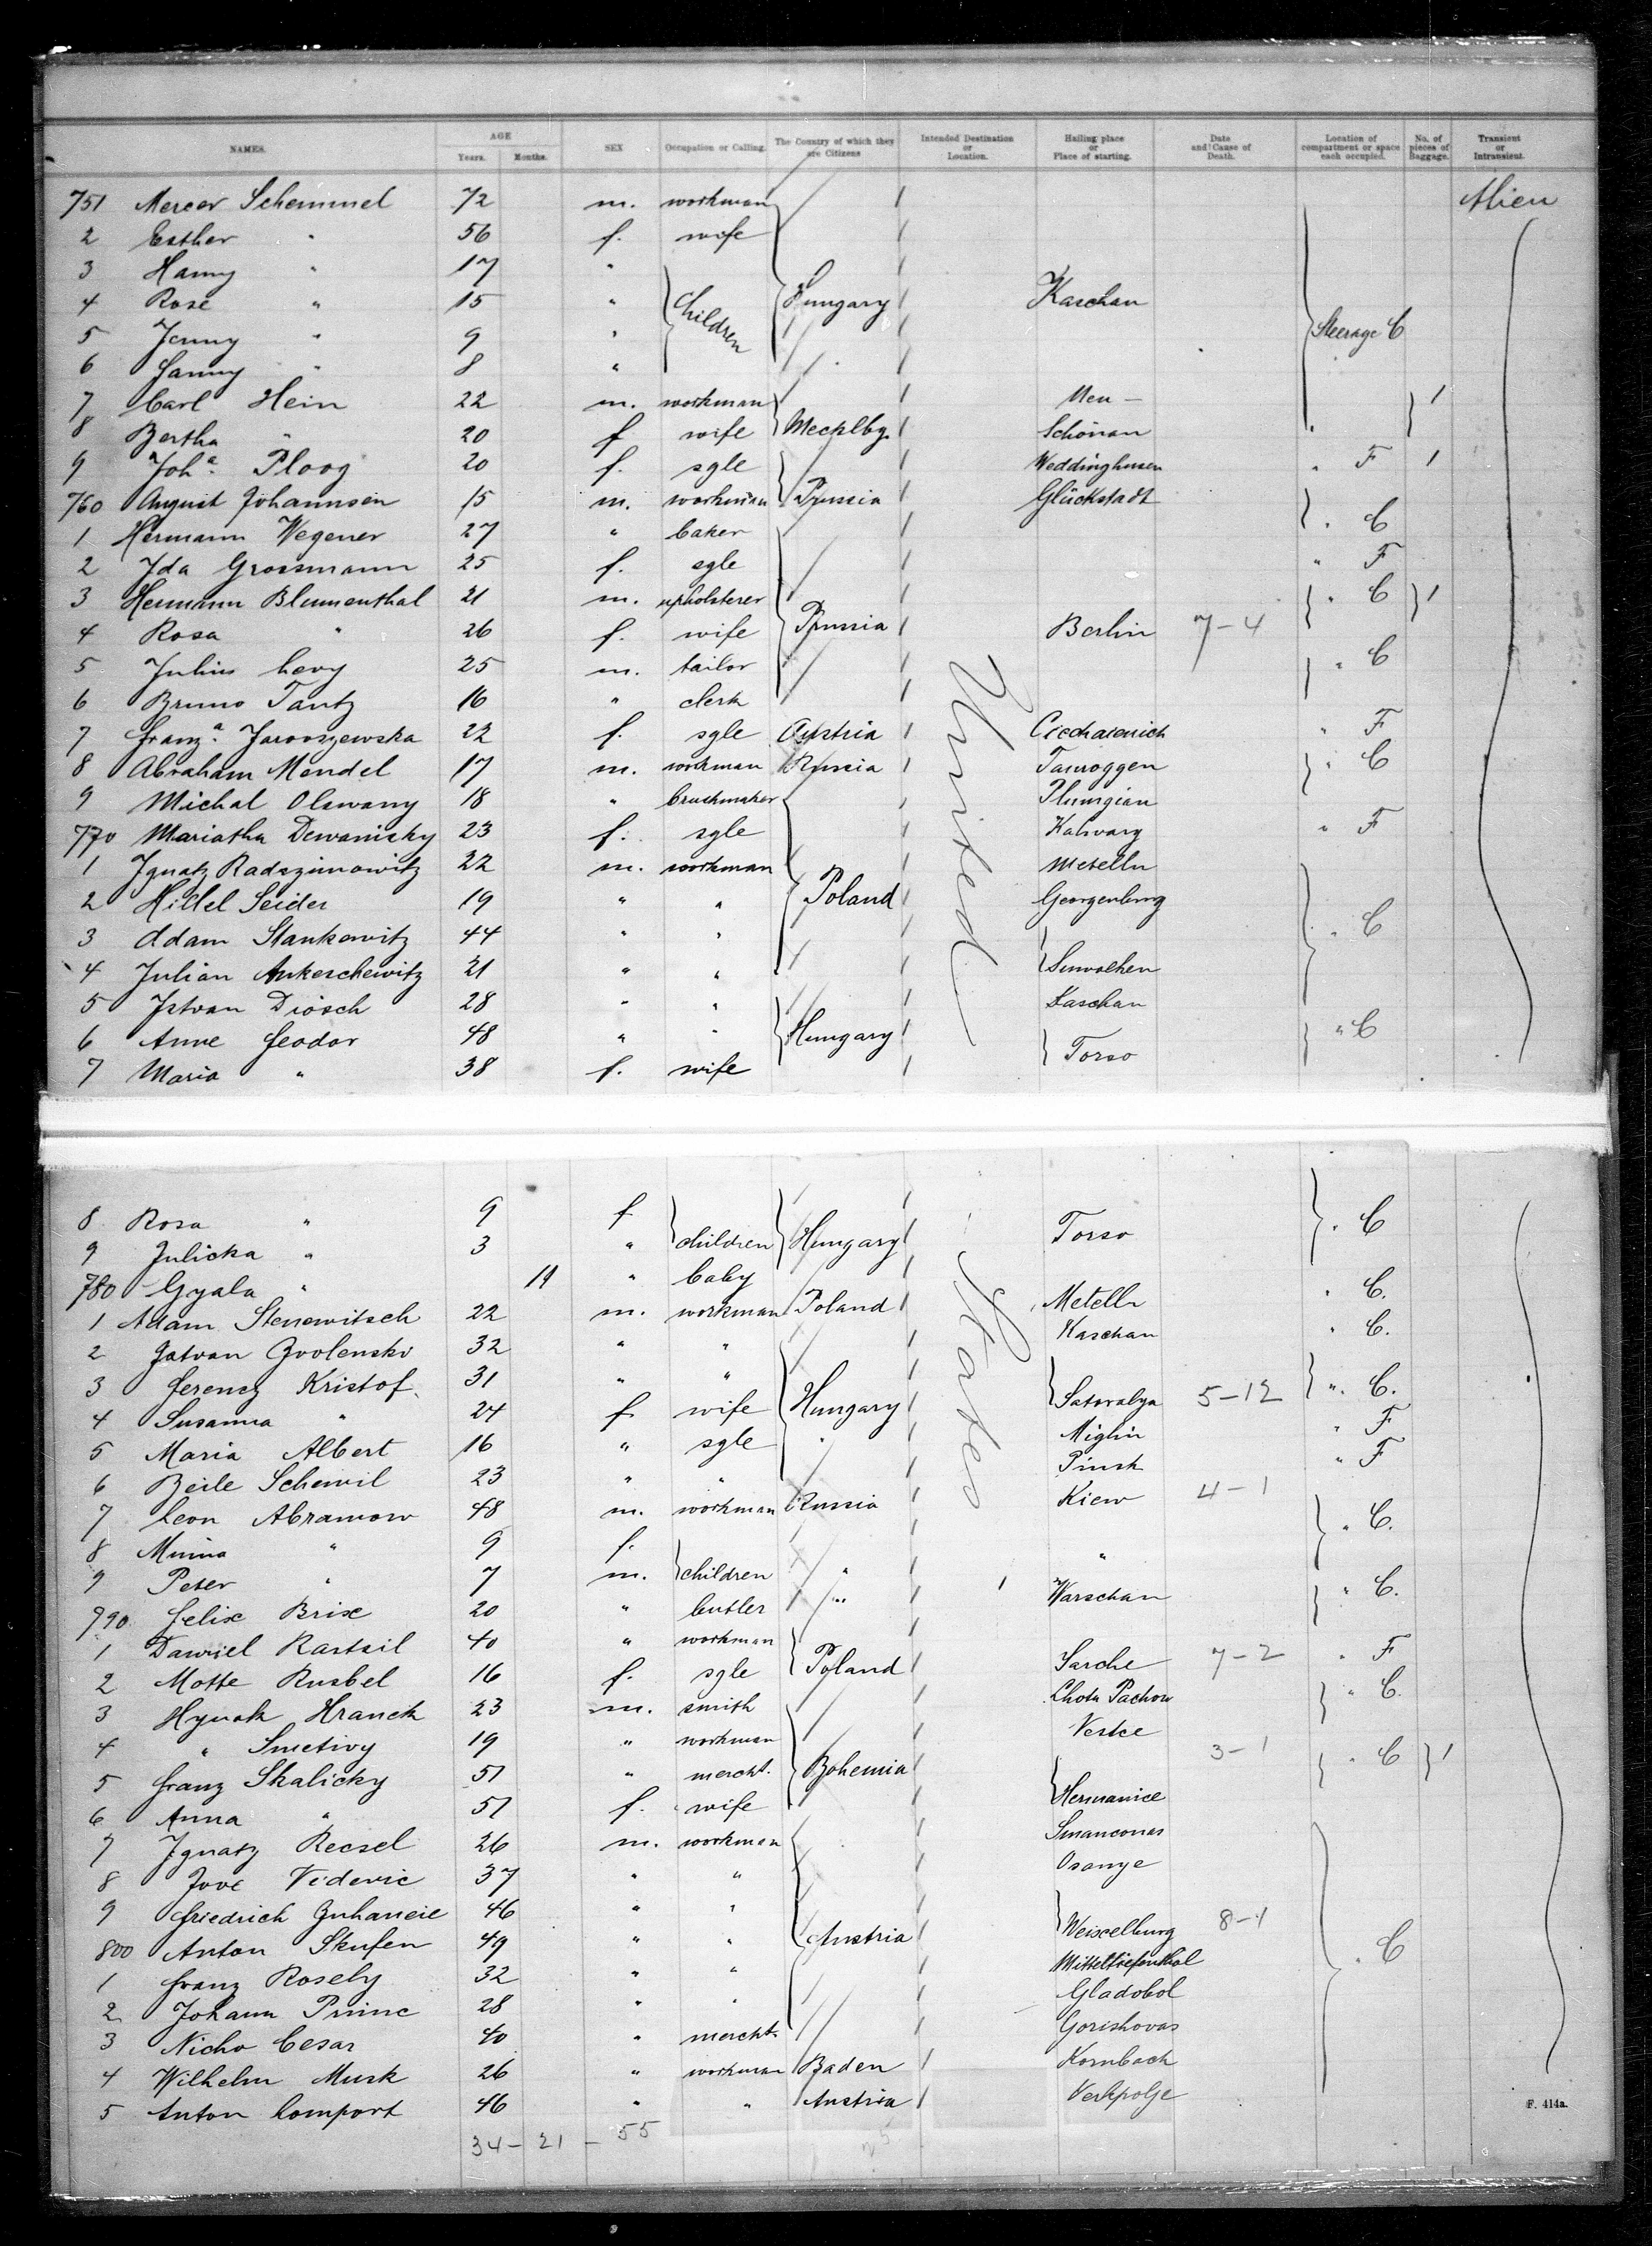 NAMES. AGE Years. Months. SEX Occupation or Calling. The Country of which they are Citizens Intended Destination or Location. Hailing place or Place of starting. Date and Cause of Death. Location of compartment or space each occupied. No. of pieces of Baggage. Transient or Intransient.
751 Mercer Schemmel 72 m. workman Alien
2 Esther " 56 f. wife
3 Hanny " 17 "
4 Rose " 15 " Children Hungary Kaschau
5 Jenny " 9 " Steerage C
6 Fanny " 8 "
7 Carl Hein 22 m. workman Neu - 1
8 Bertha " 20 f wife Mecklbg. Schönau
9 Joha. Ploog 20 f. sgle Weddinghusen " F 1
760 August Johannsen 15 m. workman Prussia Glückstadt
1 Hermann Wegener 27 " baker " C
2 Ida Grossmann 25 f. sgle " F
3 Hermann Blumenthal 21 m. upholsterer " C 1
4 Rosa " 26 f. wife Prussia Berlin 7-4
5 Julius Levy 25 m. tailor " C
6 Bruno Tantz 16 " clerk
7 Franz.a Jarooszewska 22 f. sgle Austria " F
8 Abraham Mendel 17 m. workman Russia Tauroggen " C
9 Michal Olswany 18 " brushmaker Plungian
770 Mariatha Dewanisky 23 f. sgle Kalvary " F
1 Ignatz Radszimowitz 22 m. workman Metelln
2 Hillel Seider 19 " " Poland Georgenburg
3 Adam Stankewitz 44 " " " C
4 Julian Ankeschewitz 21 " " Suwalken
5 Istvan Diösch 28 " " Kaschau
6 Anne Feodor 48 " " Hungary " C
7 Maria " 38 f. wife Torso
United States
8 Rosa " 9 f
9 Julicka " 3 " children Hungary Torso " C
780 Gyala " 11 " baby
1 Adam Stenewitsch 22 m. workman Poland Metelln " C.
2 Istvan Zvolensko 32 " " Kaschau " C.
3 Ferencz Kristof. 31 " "
4 Susanna " 24 f. wife Hungary Satoralya 5-12 " C.
5 Maria Albert 16 " sgle Miglin " F
6 Beile Schewil 23 " " Pinsk " F
7 Leon Abramow 48 m. workman Russia Kiew 4-1
8 Minna " 9 f. " C.
9 Peter " 7 m. children " "
790 Felix Brix 20 " butler " Warschau " C.
1 Dawiel Rastsil 40 " workman
2 Motte Rusbel 16 f. sgle Poland Sarche 7-2 " F
3 Hynek Hranek 23 m. smith Lhota Pachow " C.
4 " Smetivy 19 " workman Vestce
5 Franz Skalicky 51 " mercht. Bohemia 3-1 " C 1
6 Anna " 51 f. wife Hermanice
7 Ignatz Recsel 26 m. workman Smanconas
8 Jove Vidovic 37 " " Osanye
9 Friedrich Zuhaneie 46 " "
800 Anton Skufen 49 " " Austria Weixelburg 8-1
1 Franz Rosely 32 " " Mitteltiefenthal " C
2 Johann Prime 28 " " Gladobol
3 Nicho Cesar 40 " mercht. Gorishovas
4 Wilhelm Musk 26 " workman Baden Kornbach
5 Anton Comport 46 " " Austria Verhpolje
34 - 21 - 55
F. 414a.